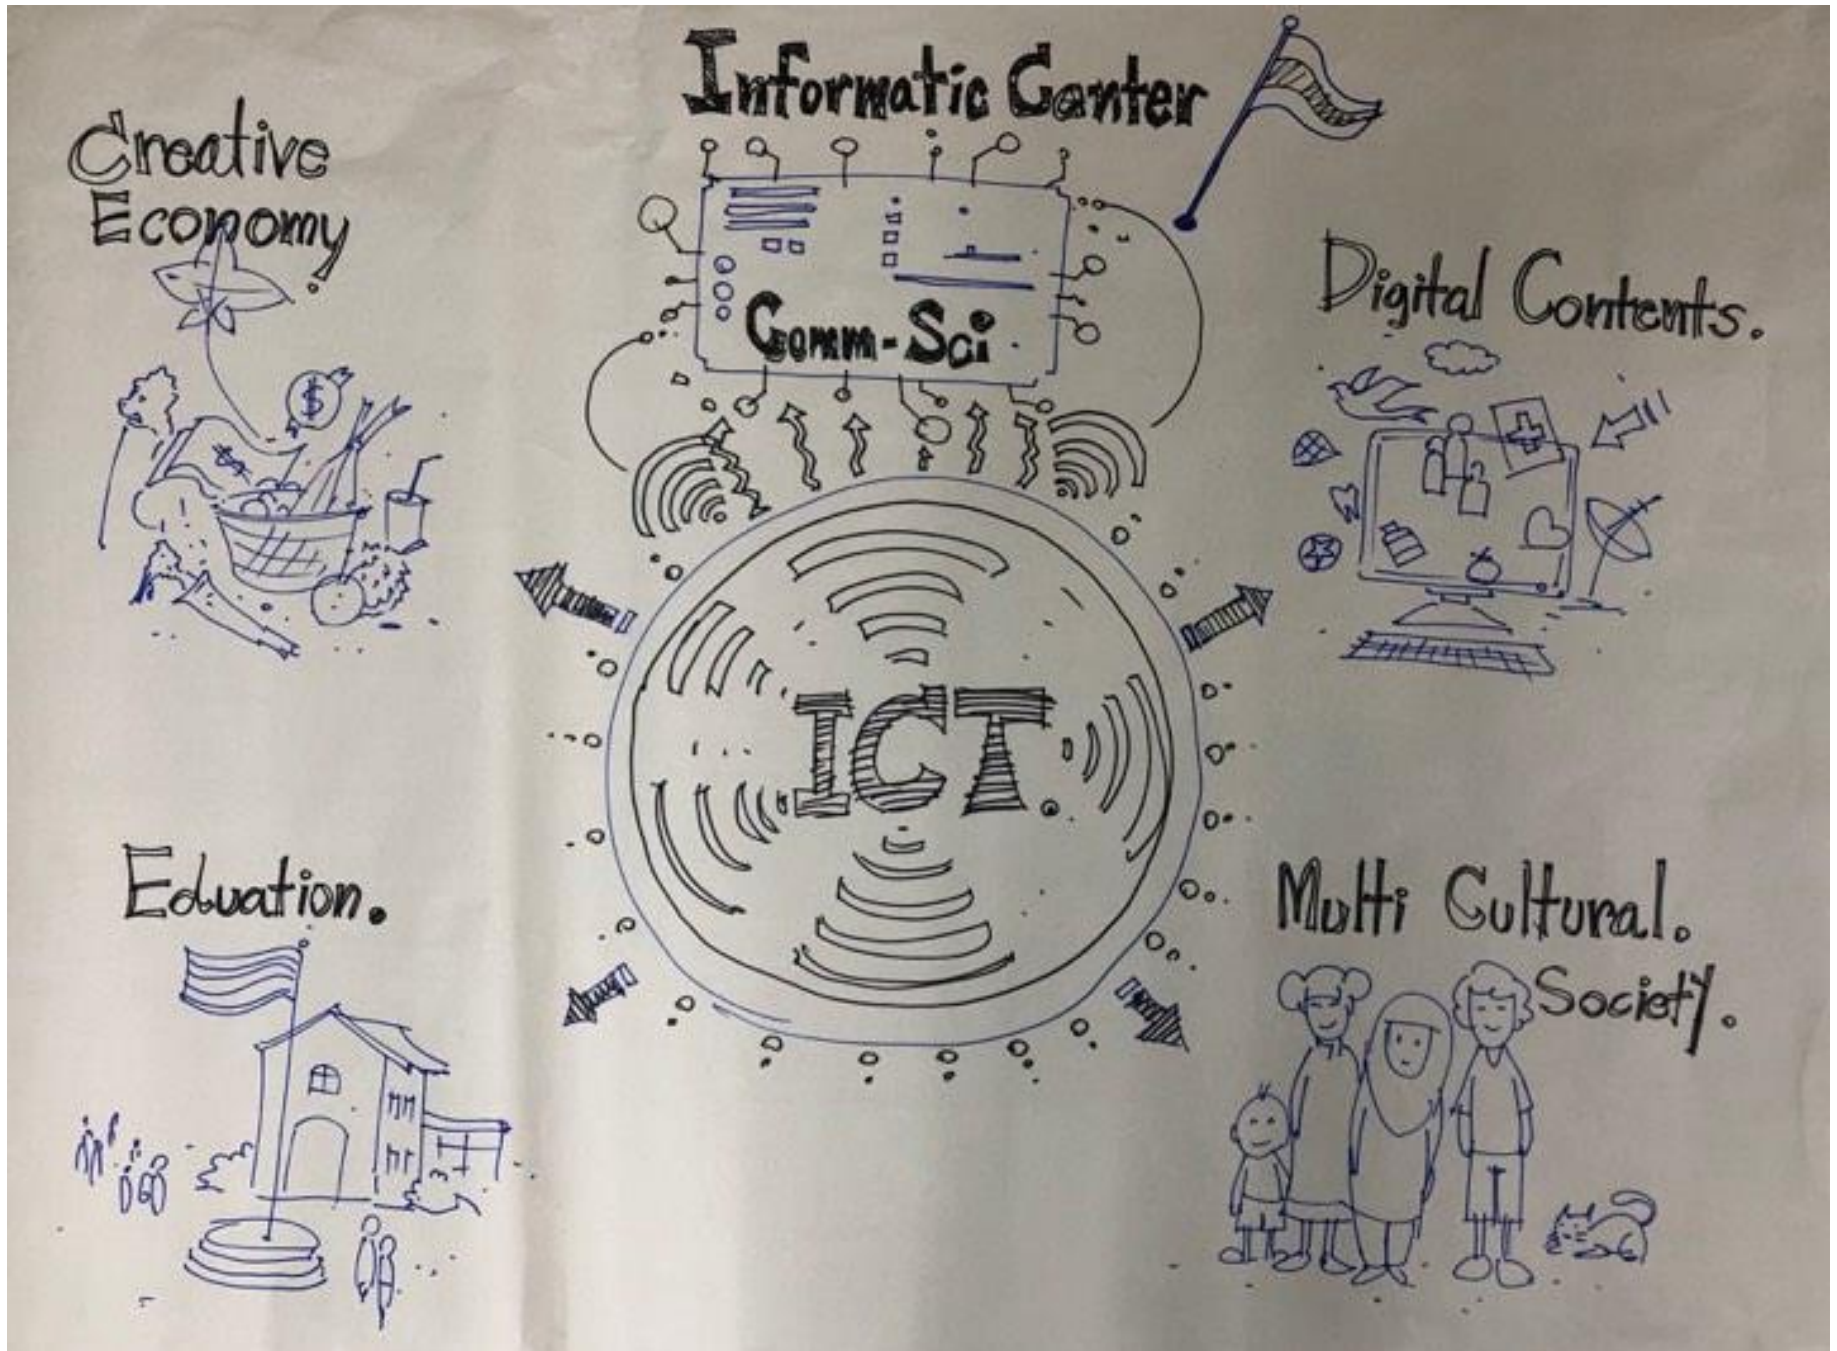 Informatic Center
Creative
Economy
Comm-Sci
Digital Contents.
$
$
ICT.
Eduation.
Multi Cultural.
Society.